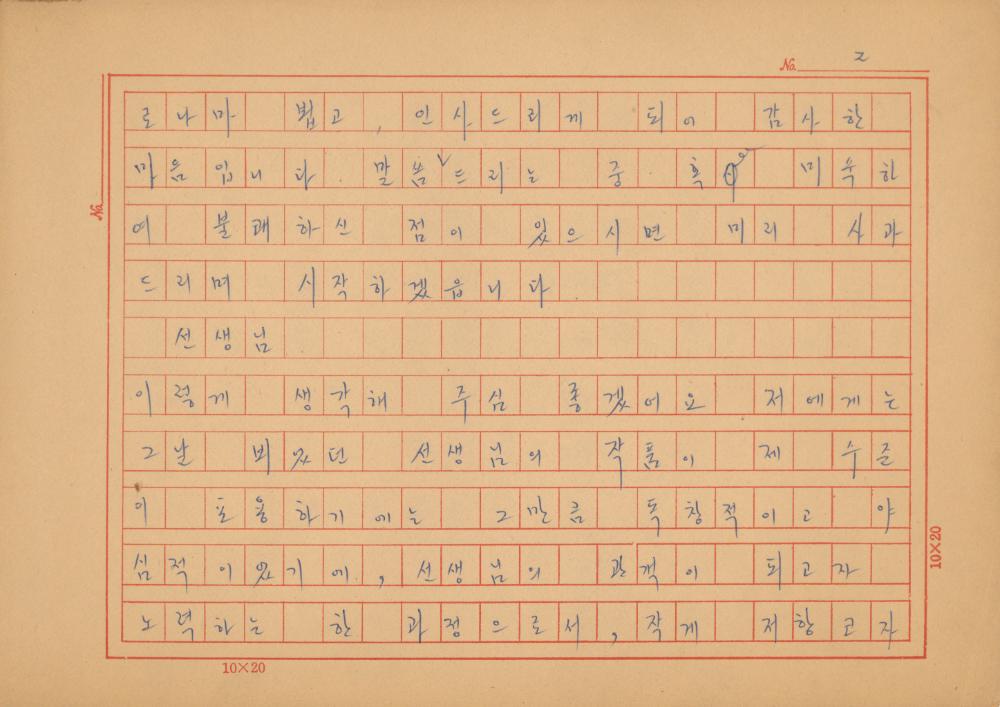 No. 2
로나마 뵙고, 인사드리게 되어 감사한
마음입니다. 말씀드리는 중 혹 미숙하
여 불쾌하신 점이 있으시면 미리 사과
드리며 시작하겠읍니다.
선생님
이렇게 생각해 주심 좋겠어요 저에게는
그날 뵈었던 선생님의 작품이 제 수준
이 포용하기에는 그만큼 독창적이고 야
심적이었기에, 선생님의 관객이 되고자
노력하는 한 과정으로서, 작게 저항코자
No.
10×20
10×20